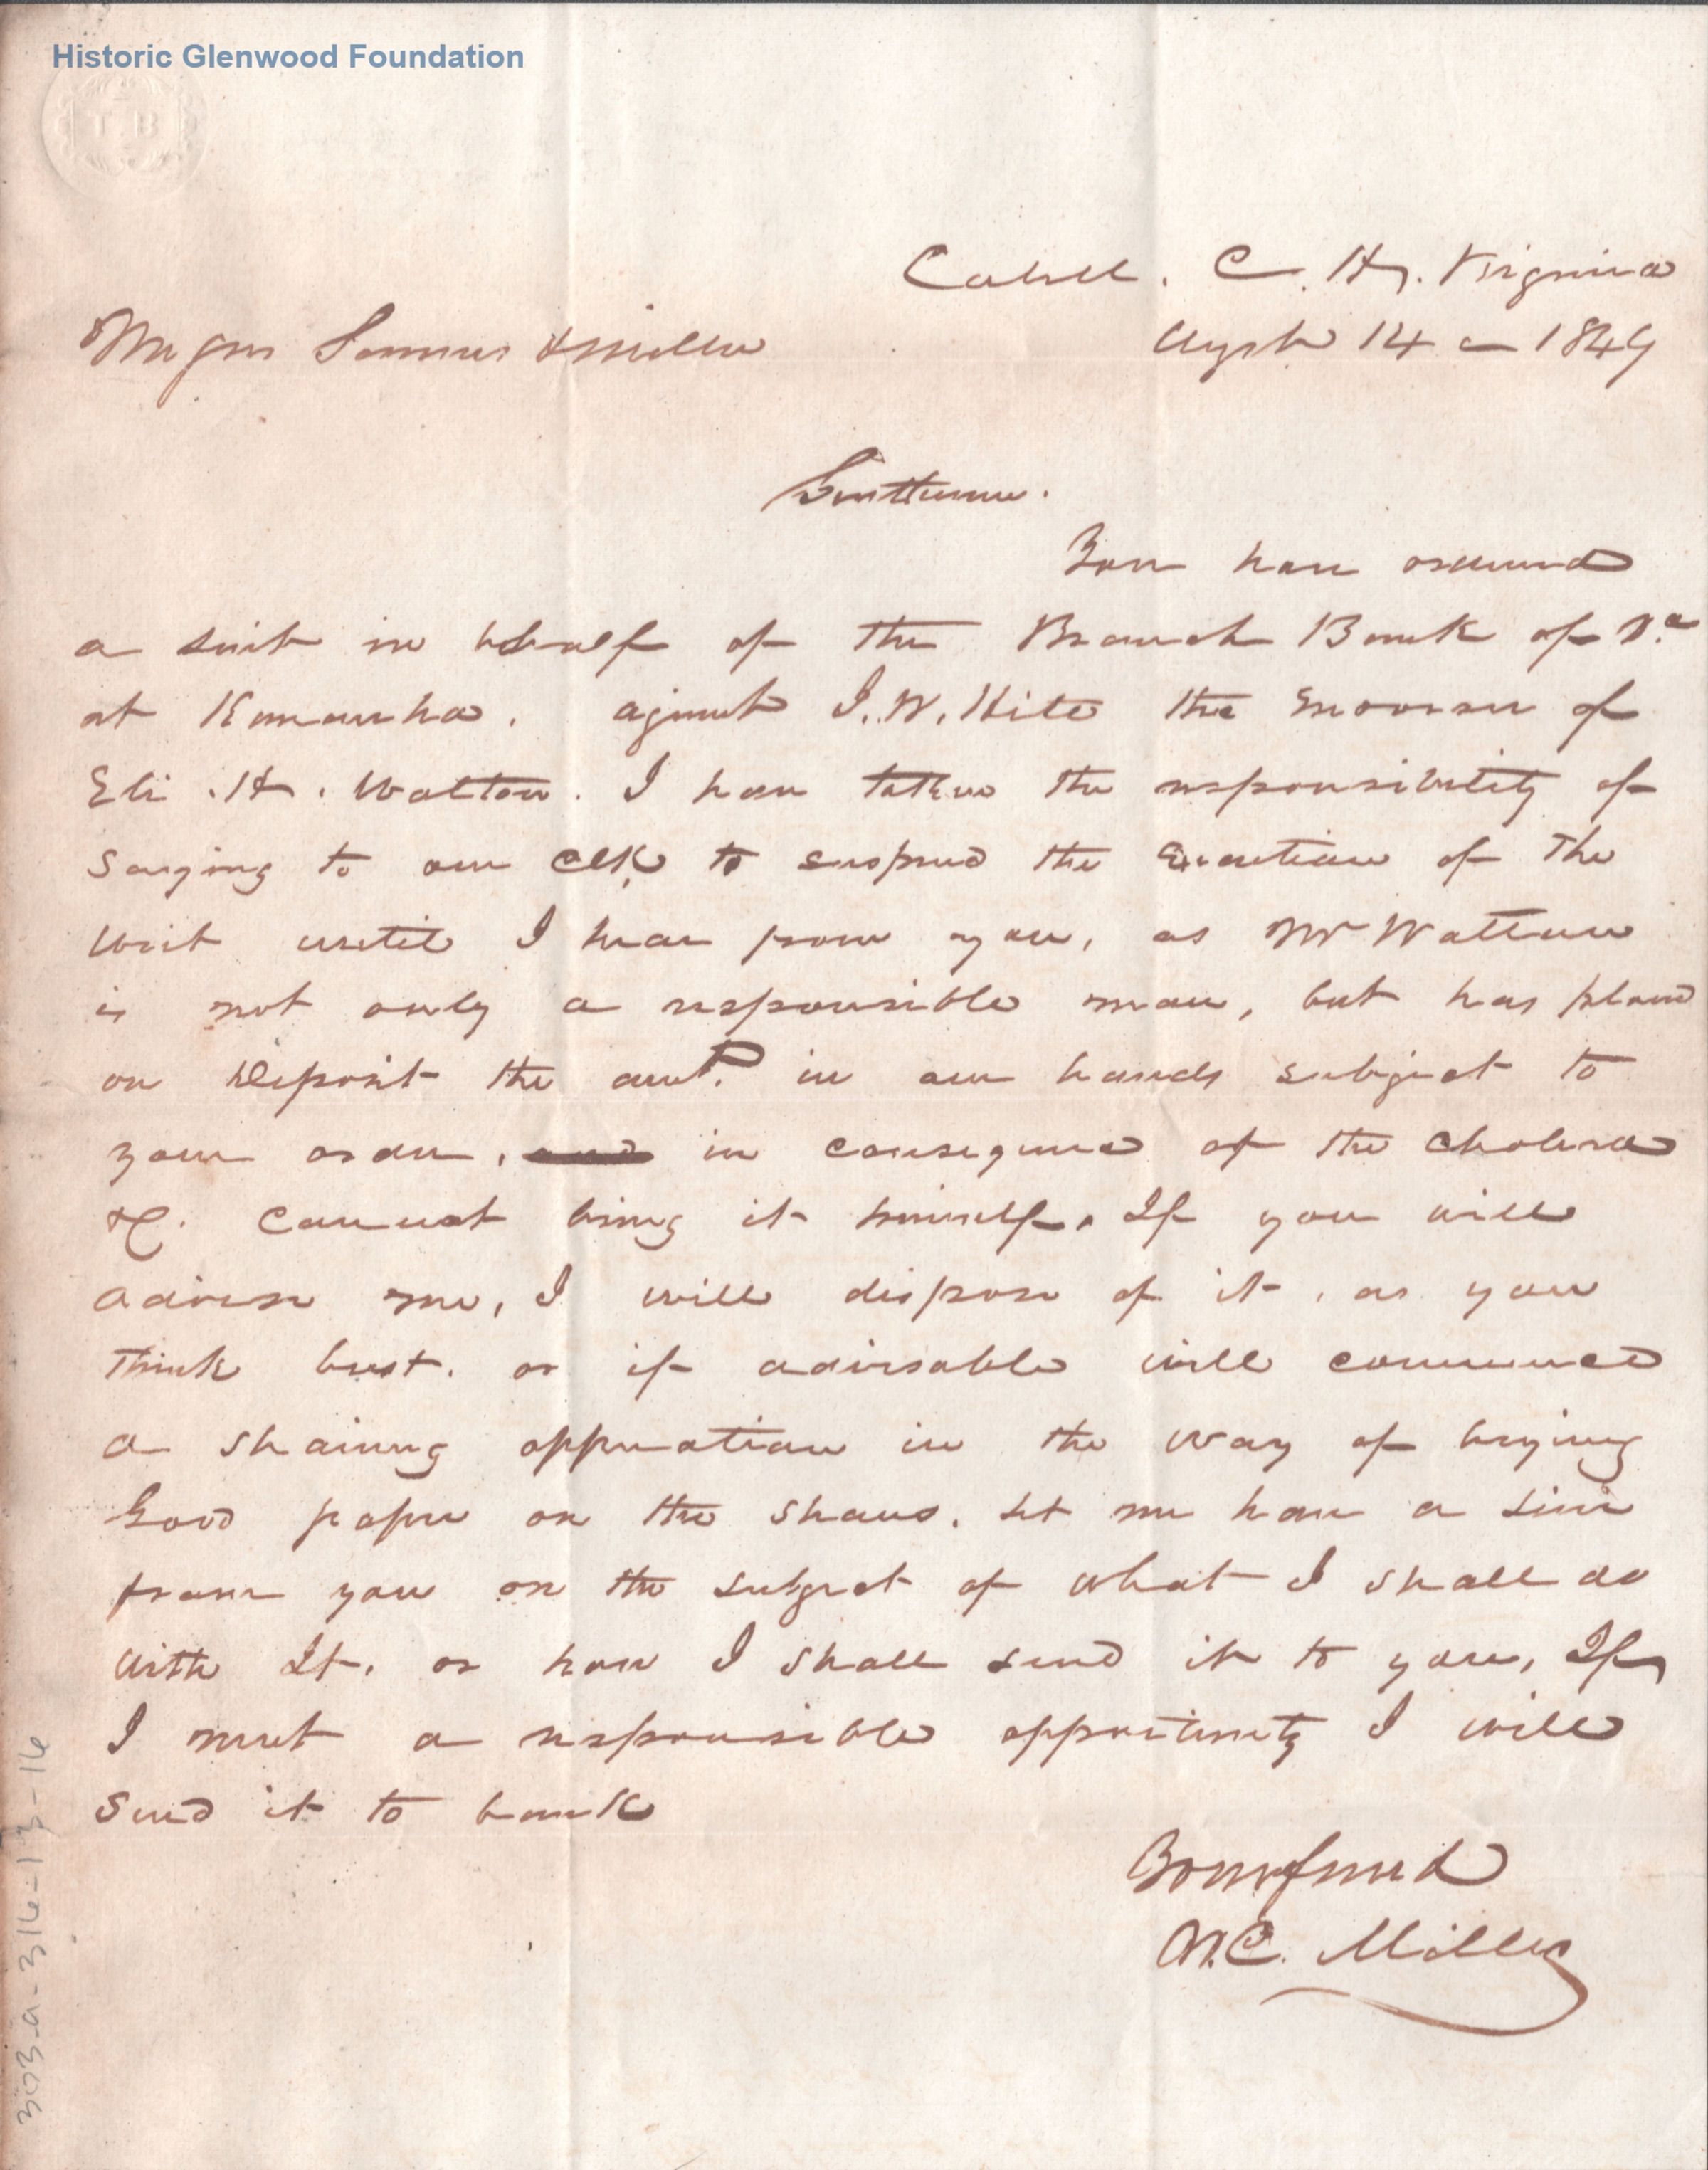 Historic Glenwood Foundation
T B
Cabell. C. H. Virginia
Messrs Summers & Miller
Augst 14 1849
Gentlemen.
You have ordered
a suit in behalf of the Branch Bank of Va
at Kanawha. against J. W. Hite the Endorser of
Eli . H . Walton. I have taken the responsibility of
saying to our Clk, to suspend the Execution of the
writ until I hear from you, as Mr Walton
is not only a responsible man, but has placed
on deposit the amt. in our hands subject to
your order, in consequence of the Cholera
&C. Cannot bring it himself. If you will
advise me, I will dispose of it, as you
think best. or if advisable will commence
a shaving opperation in the way of buying
Good paper on the shave. Let me have a line
from you on the subject of what I shall do
with It. or how I shall send it to you, If
I meet a responsible opportunity I will
send it to bank
Your friend
W.C. Miller
303-a-316-13-16